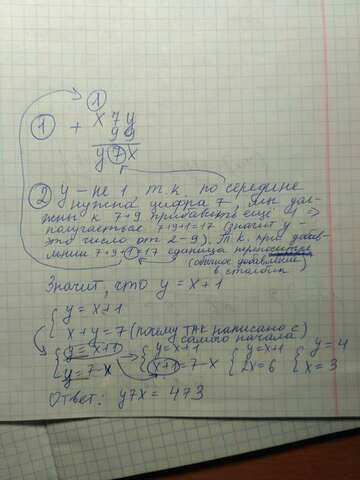 1
1 + х 7 у
9 9
у 7 х
2 у - не 1, т.к. по середине
нужна цифра 7, мы дол-
жны к 7+9 прибавить ещё 1 =>
получается 7+9+1=17 (значит у -
это число от 2-9). Т.к. при добав-
лении 7+9+1=17 единица переносится
(обычное добавление)
в столбик
Значит, что у = х+1
{ у = х+1
х + у = 7 (почему ТАК написано с
самого начала)
{ у = х+1 { у = х+1 { у = х+1 { у = 4
у = 7-х х+1 = 7-х 2х = 6 х = 3
Ответ: у7х = 473